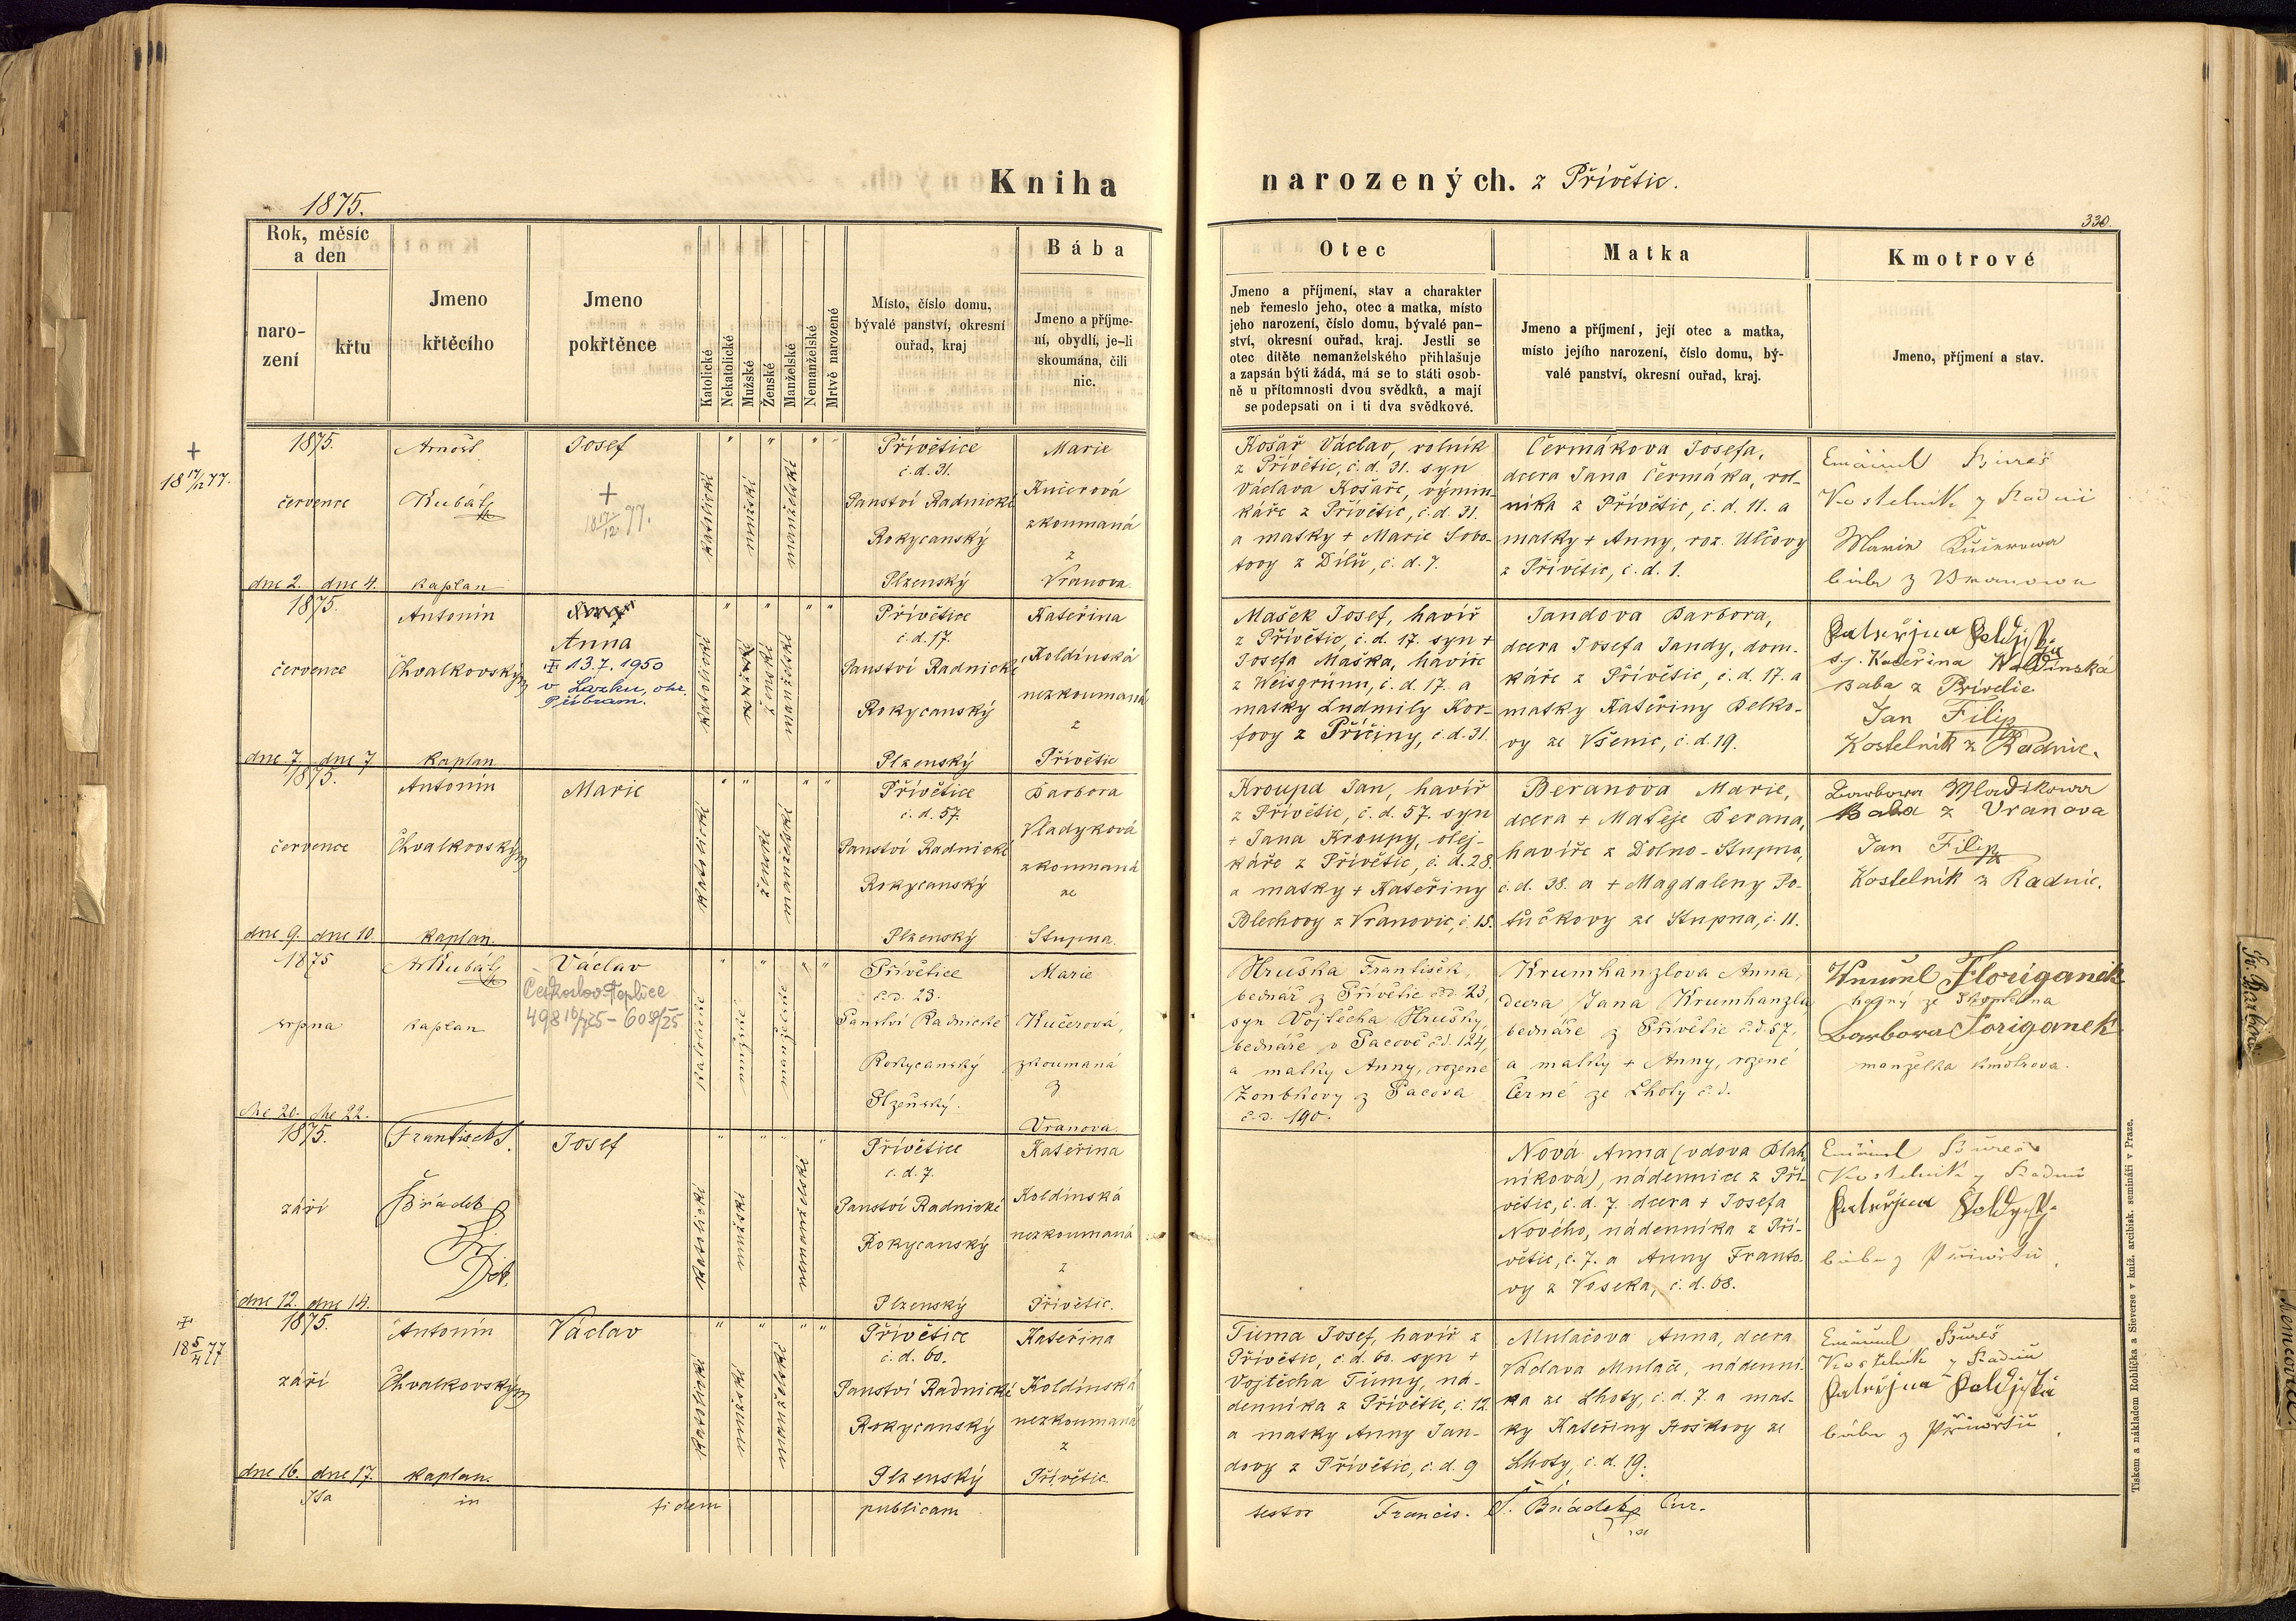 Kniha narozených. z Přívětic.
1875.
330.
Rok, měsíc a den
naro-
zení
křtu
Jmeno
křtěcího
Jmeno
pokřtěnce
Katolické
Nekatolické
Mužské
Ženské
Manželské
Nemanželské
Mrtvě narozené
Místo, číslo domu,
bývalé panství, okresní
ouřad, kraj
Bába
Jmeno a příjme-
ní, obydlí, je-li
skoumána, čili
nic.
Otec
Jmeno a příjmení, stav a charakter
neb řemeslo jeho, otec a matka, místo
jeho narození, číslo domu, bývalé pan-
ství, okresní ouřad, kraj. Jestli se
otec dítěte nemanželského přihlašuje
a zapsán býti žádá, má se to státi osob-
ně u přítomnosti dvou svědků, a mají
se podepsati on i ti dva svědkové.
Matka
Jmeno a příjmení, její otec a matka,
místo jejího narození, číslo domu, bý-
valé panství, okresní ouřad, kraj.
Kmotrové
Jmeno, příjmení a stav.
+
18 17/12 77.
1875.
července
dne 2. dne 4.
Arnošt
Kubát
kaplan
Josef
+
18 17/12 77.
katolické
mužské
manželské
Přívětice
č. d. 31.
Panství Radnické
Rokycanský
Plzenský
Marie
Kučerová
zkoumaná
z
Vranova.
Košař Václav, rolník
z Přívětic, č. d. 31. syn
Václava Košaře, výmin-
káře z Přívětic, č. d. 31.
a matky + Marie Sobo-
tovy z Dílů, č. d. 7.
Čermákova Josefa,
dcera Jana Čermáka, rol-
níka z Přívětic, č. d. 11. a
matky + Anny, roz. Ulčovy
z Přívětic, č. d. 1.
Emanuel Bureš
Kostelník z Radnic
Marie Kučerowa
bába z Vranowa
1875.
července
dne 7. dne 7
Antonín
Chvalkovský
kaplan
Anna
13.7.1950
v Lázku, okr.
Příbram.
katolické
ženské
manželské
Přívětice
č. d. 17.
Panství Radnické
Rokycanský
Plzenský
Kateřina
Koldínská
nezkoumaná
z
Přívětic
Mašek Josef, havíř
z Přívětic, č. d. 17. syn +
Josefa Maška, havíře
z Weisgrünu, č. d. 17. a
matky Ludmily Kor-
fovy z Příčiny, č. d. 31.
Jandova Barbora,
dcera Josefa Jandy, dom-
káře z Přívětic, č. d. 17. a
matky Kateřiny Belko-
vy ze Všenic, č. d. 19.
sj. Kateřina Koldinská
Baba z Privetic
Jan Filip
Kostelník z Radnic.
1875.
července
dne 9. dne 10.
Antonín
Chvalkovský
kaplan.
Marie
katolické
ženské
manželské
Přívětice
č. d. 57.
Panství Radnické
Rokycanský
Plzenský
Barbora
Vladyková
zkoumaná
ze
Stupna.
Kroupa Jan, havíř
z Přívětic, č. d. 57. syn
+ Jana Kroupy, olej-
káře z Přívětic, č. d. 28.
a matky + Kateřiny
Blechovy z Vranovic, č. 15.
Beranova Marie,
dcera + Matěje Berana,
havíře z Dolno-Stupna,
č. d. 38. a + Magdaleny Po-
tůčkovy ze Stupna, č. 11.
Barbora Mladikowa
Baba z Vranova
Jan Filip
Kostelník z Radnic.
1875
srpna
dne 20. dne 22.
Ar Kubát
kaplan
Václav
Českoslov. Teplice
katolické
mužské
manželské
Přívětice
č. d. 23.
Panství Radnické
Rokycanský
Plzeňský.
Marie
Kučerová,
zkoumaná
z
Vranova.
Hruška František,
bednář z Přívětic č. d. 23,
syn Vojtěcha Hrušky,
bednáře v Pacově č. d. 124,
a matky Anny, rozené
Zoubkovy z Pacova
č. d. 190.
Krumhanzlova Anna,
dcera Jana Krumhanzla
bednáře z Přívětic č. d. 57,
a matky + Anny, rozené
Černé ze Lhoty č. d.
Floriganek
hajný ze
Barbora Floriganek
manželka kmotrova.
1875.
září
dne 12. dne 14.
František S.
Bňádek
Josef
katolické
mužské
nemanželské
Přívětice
č. d. 7.
Panství Radnické
Rokycanský
Plzenský
Kateřina
Koldínská
nezkoumaná
z
Přívětic.
Nová Anna (vdova Blah-
níková), nádennice z Pří-
větic, č. d. 7. dcera + Josefa
Nového, nádenníka z Pří-
větic, č. 7. a Anny Franto-
vy z Voseka, č. d. 68.
Emanuel Bureš
Kostelník z Radnic
bába z Přiwětic
18 5/4 77
1875.
září
dne 16. dne 17.
Antonín
Chvalkovský
kaplan.
Václav
katolické
mužské
manželské
Přívětice
č. d. 60.
Panství Radnické
Rokycanský
Plzenský
Kateřina
Koldínská
nezkoumaná
z
Přívětic
Tůma Josef, havíř z
Přívětic, č. d. 60. syn +
Vojtěcha Tůmy, ná-
denníka z Přívětic, č. 12.
a matky Anny Jan-
dovy z Přívětic, č. d. 9
Mulačova Anna, dcera
Václava Mulače, nádenní-
ka ze Lhoty, č. d. 7. a mat-
ky Kateřiny Hoškovy ze
Lhoty, č. d. 19.
Emanuel Bureš
Kostelník z Radnic
bába z Přiwětic
Ita in fidem publicam testor Francis. S. Bňádek Cur.
Tiskem a nákladem Rohlíčka a Sieverse v kníž. arcibisk. semináři v Praze.
Sv. Barbora
Němčovice.